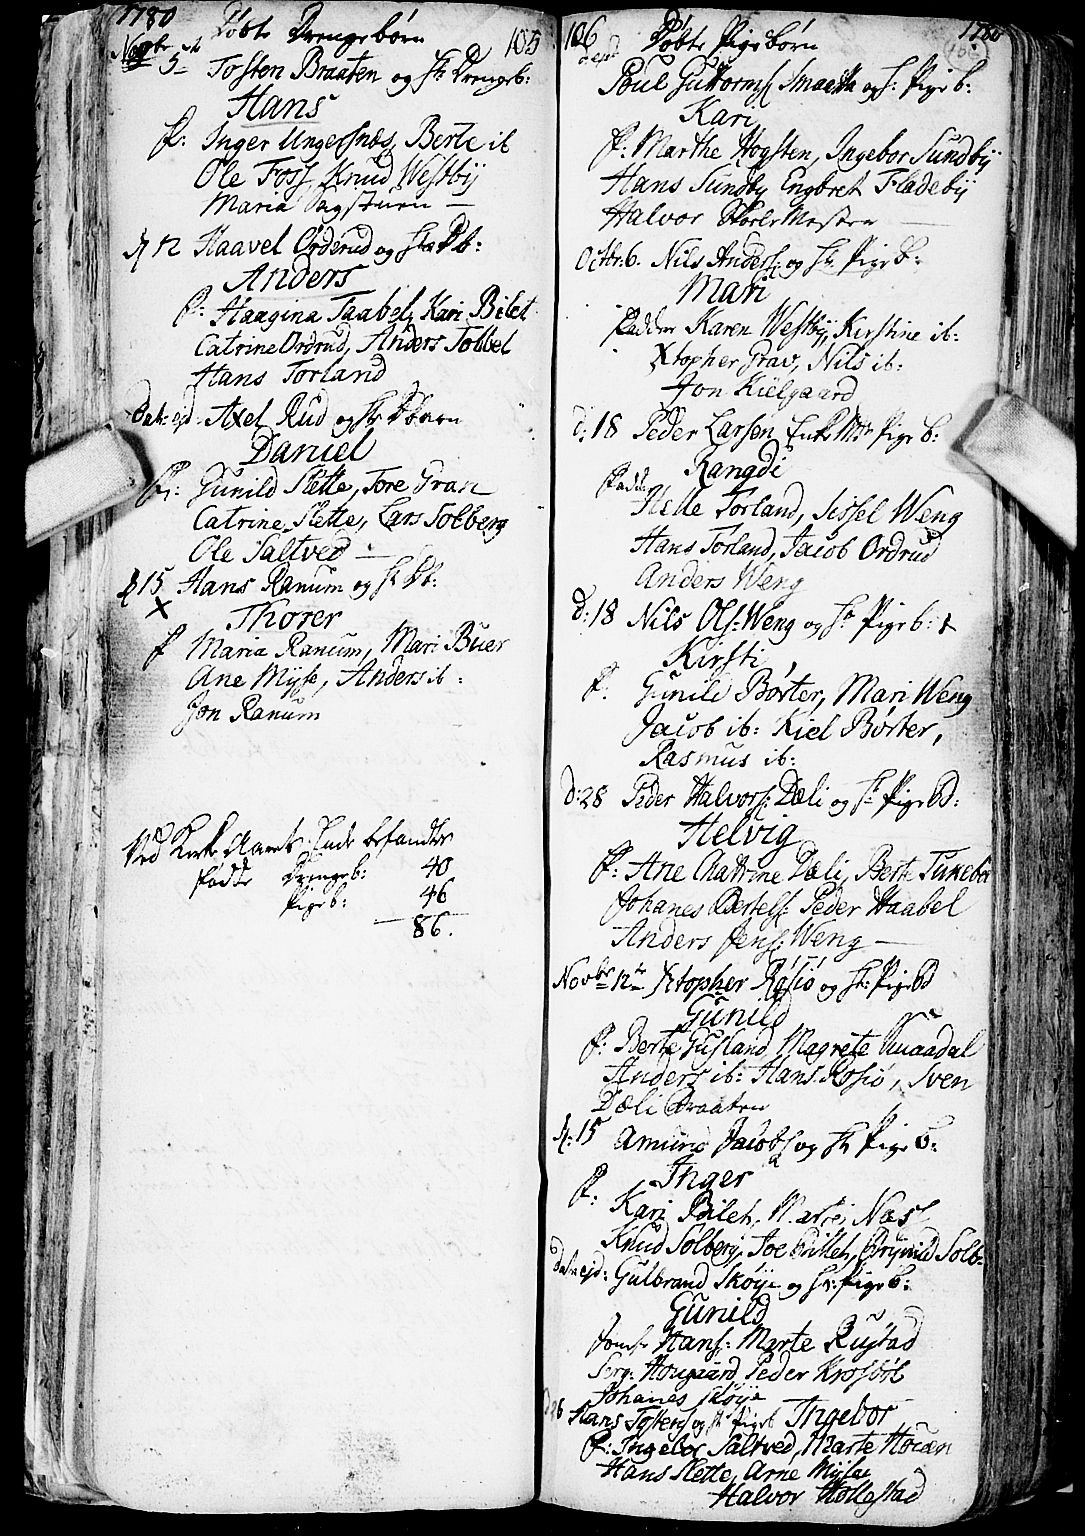 1780 Døbte Drengebørn 105
Novbr 5te Tosten Braaten og Hs Drengeb:
Hans
F: Inger Ungersnæs, Berte ib
Ole Foss, Knud Westbÿ
Maria Sagstuen —
d 12 Haavel Orderud og Hs Db:
Anders
F: Haagina Taabel, Kari Bilet
Catrine Ordrud, Anders Tobbel
Hans Torland
Dat: ejd: Axel Rud og Hs Dbørn
Daniel
F: Gunild Slette, Tore Gran
Catrine Slette, Lars Solberg
Ole Saltved —
d 15 Hans Ranum og Hs Db:
X Thorer
F Maria Ranum, Mari Buer
Ane Mÿse, Anders ib:
Jon Ranum
Ved Kirke Aarets Ende befandtes
fødde Drengeb: 40
Pigeb: 46
86.
106 Døbte Pigebørn 1780
d. ejd Poul Guttorms Smaetta og H: Pigeb:
Kari
F: Marthe Hogsten, Ingebor Sundbÿ
Hans Sundby Engbret Fladebÿ
Halvor Skoele Mester —
Octbr. 6. Nils Anders: og Hs Pigeb:
Mari
Faddere Karen Westbÿ, Kirstine ib:
Xtopher Grav, Nils ib:
Jon Kielgaard
d: 18 Peder Larsen Pigeb:
Rangdi
Fadd: Helle Torland, Sissel Weng
Hans Torland, Jacob Ordrud
Anders Weng
d: 18 Nils Ols: Weng og Hs Pigeb: X
Kirsti
F: Gunild Børter, Mari Weng
Jacob ib: Kiel Børter,
Rasmus ib:
d: 28 Peder Halvors: Dæli og Hs Pigebd:
Helvig
F: Ane Chatrine Dæli, Berte Tukebør
Johanes Bertels: Peder Haabel
Anders Jens: Weng —
Novbr 12te Xtopher Røsiø og Hs: Pigebd
Gunild
F: Berte Gusland, Magrete
Anders ib: Hans Rosiø, Sven
Dæli Braaten
d: 15 Amund Jacobs og Hs Pigeb:
Inger
F: Kari Bileh, Næs
Knud Solberg, Joe Billeh, Brynild Solb:
Dat. ejd: Gulbrand Skøÿe og Hs: Pigeb:
Gunild
Hans: Marte Rustad
Serg: Hougaard Peder Krosbøl
Johanes Skøÿe
d 26 Hans og Hs Pigeb Ingebor
F: Ingebor Saltved, Marte Houæn
Hans Slette, Arne Mÿse
Halvor Hollestad